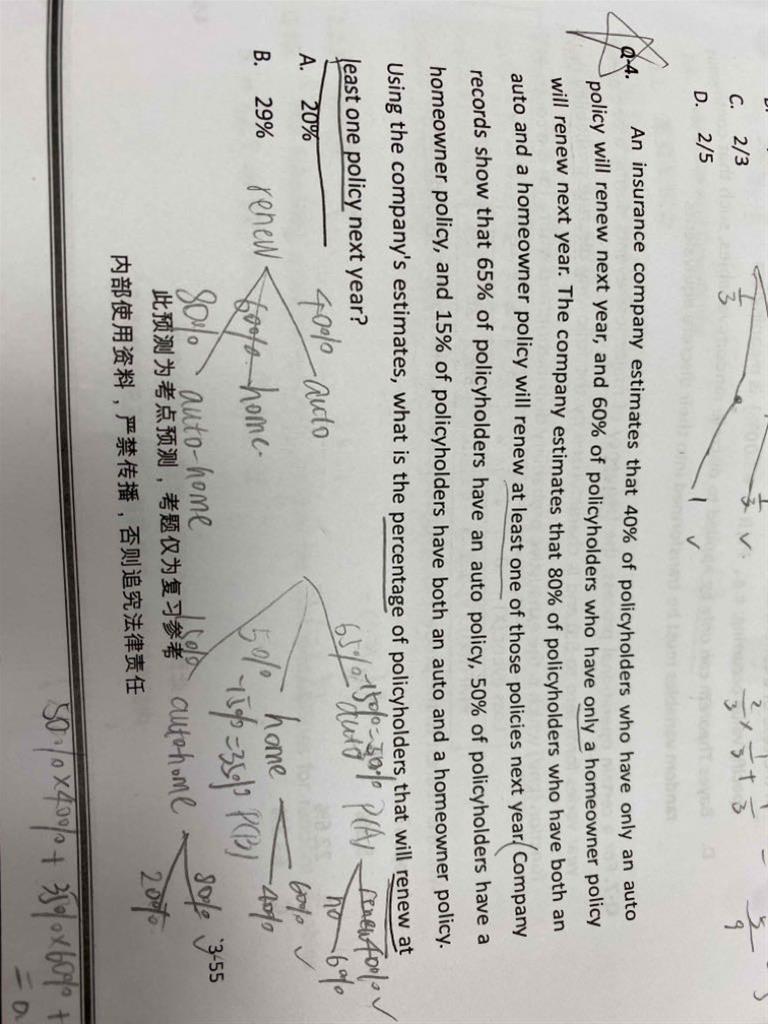 C. 2/3
D. 2/5
1/3
1/3 ✓
1 ✓
2/3 × 1/3 + 1/3
5/9
Q-4. An insurance company estimates that 40% of policyholders who have only an auto
policy will renew next year, and 60% of policyholders who have only a homeowner policy
will renew next year. The company estimates that 80% of policyholders who have both an
auto and a homeowner policy will renew at least one of those policies next year. (Company
records show that 65% of policyholders have an auto policy, 50% of policyholders have a
homeowner policy, and 15% of policyholders have both an auto and a homeowner policy.
Using the company's estimates, what is the percentage of policyholders that will renew at
least one policy next year?
A. 20%
B. 29%
renew
40% auto
60% home
80% auto-home
65% -15%=50% P(A)
auto
renew 40% ✓
no 60%
50% home
-15%=35% P(B)
60% ✓
40%
15% autohome
80% ✓
20%
3-55
此预测为考点预测，考题仅为复习参考
内部使用资料，严禁传播，否则追究法律责任
50%×40% + 35%×60% +
=